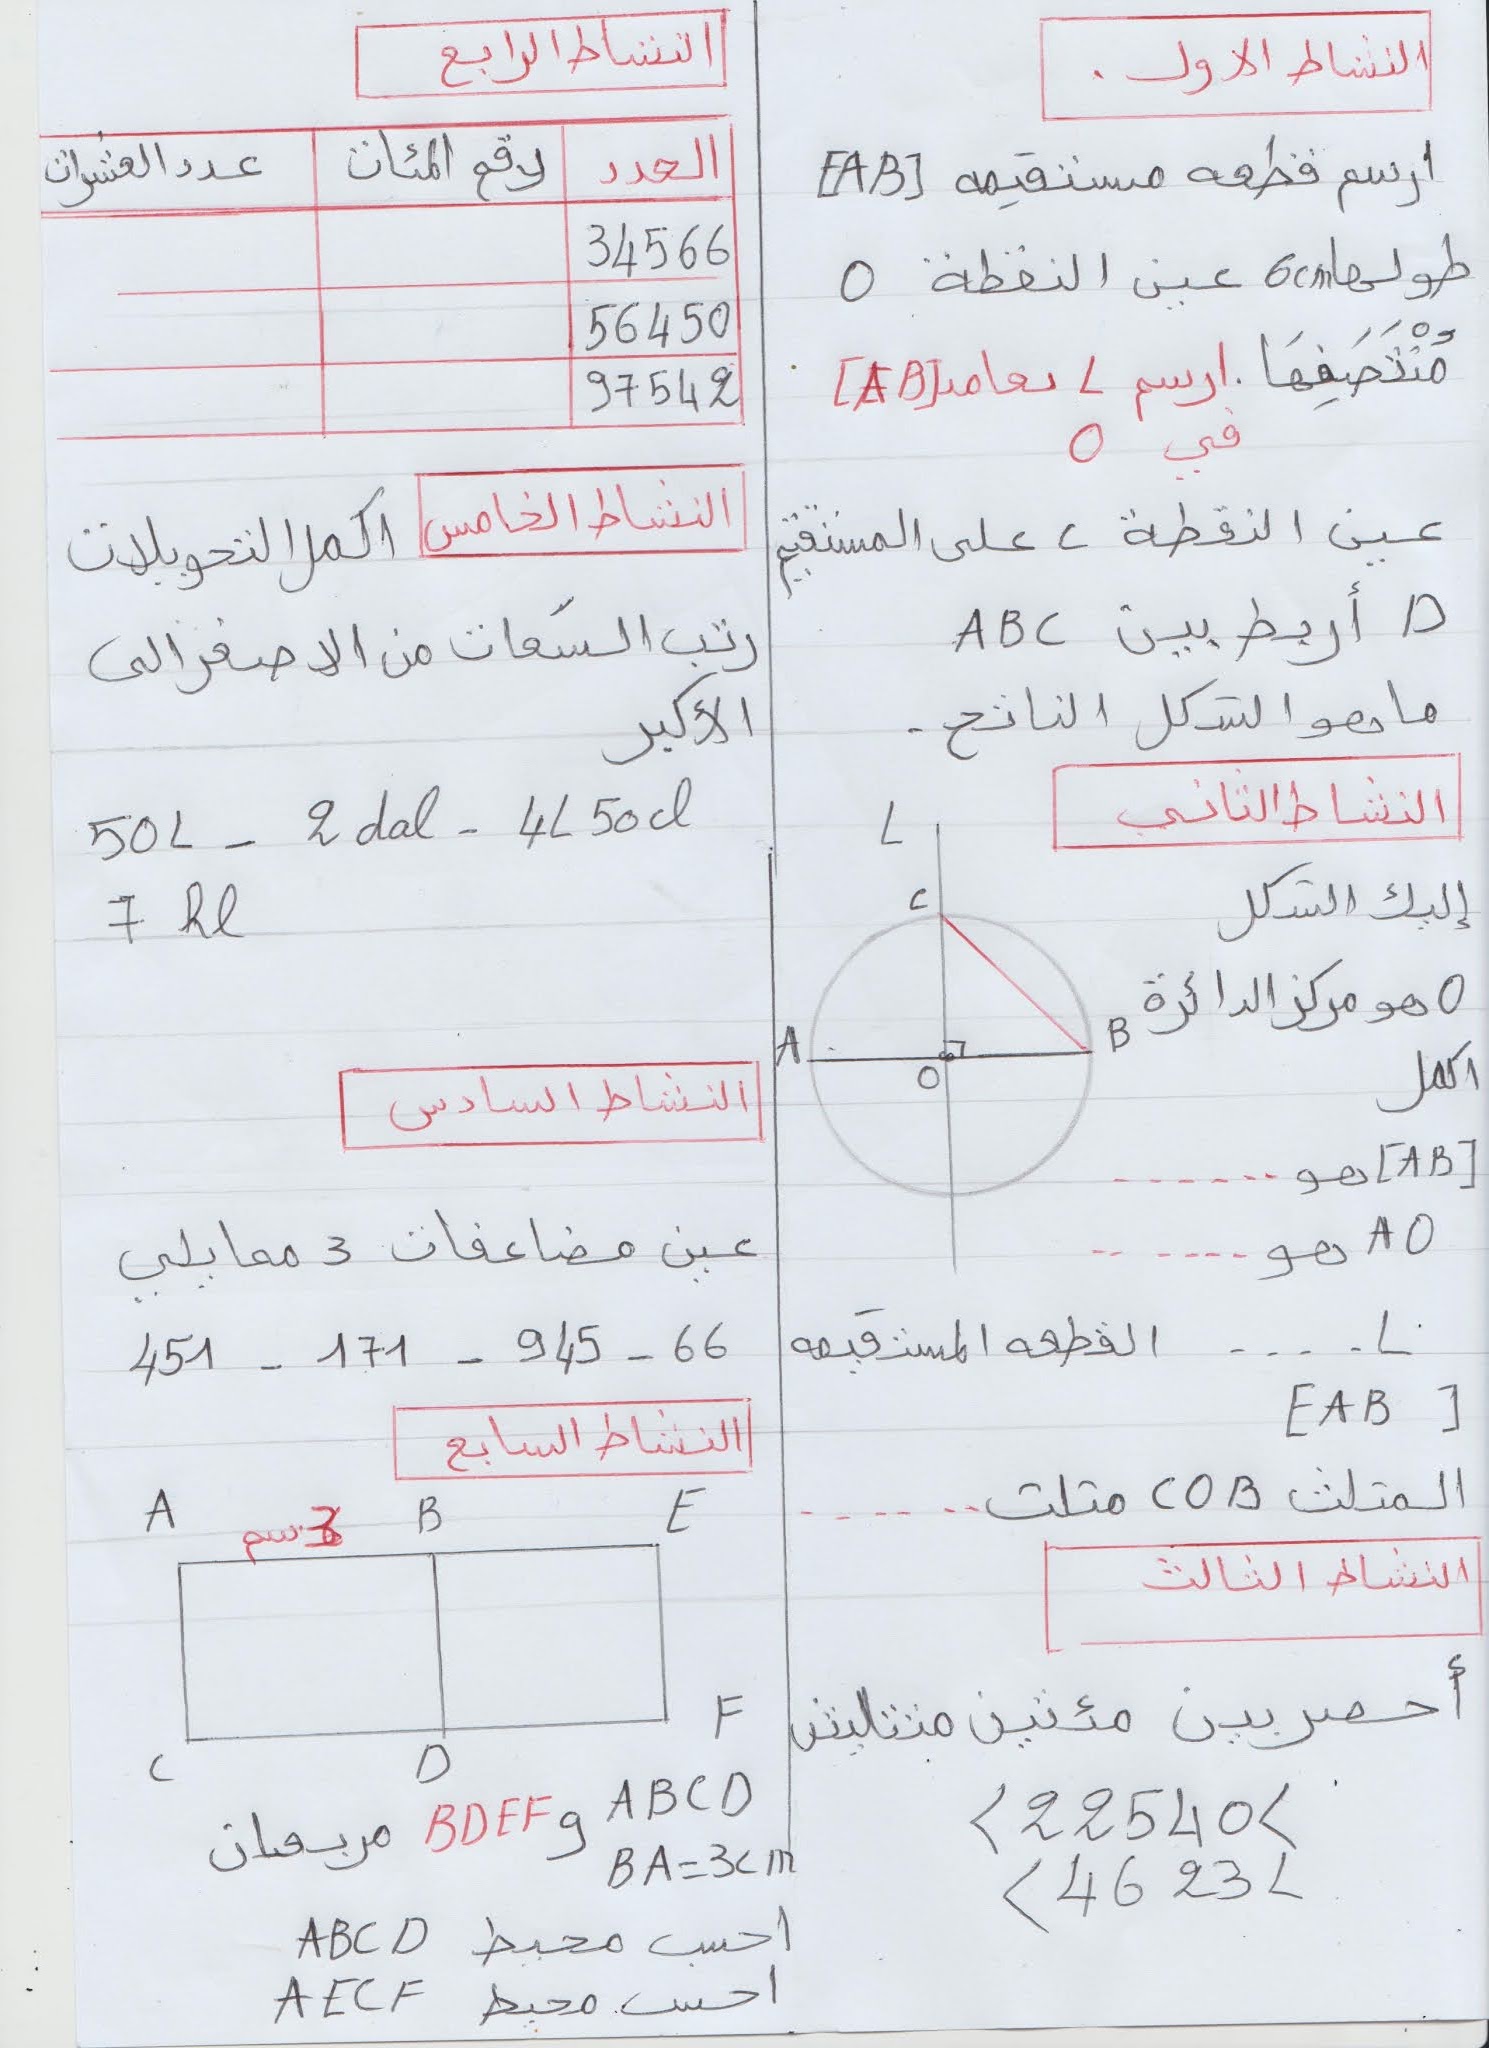 النشاط الاول .
ارسم قطعه مستقيمه [AB]
طولها 6cm عين النقطة O
مُنْتَصَفِهَا . ارسم L يعامد [AB]
في O
عين النقطة C على المستقيم
D أربط بين ABC
ما هو الشكل الناتج .
النشاط الثاني
إليك الشكل
O هو مركز الدائرة
اكمل
[AB] هو ......
AO هو ......
L ..... القطعه المستقيمه
[AB]
المثلث COB مثلث ......
L
C
A
B
O
النشاط الثالث
أحصر بين مئتين متتاليتين
<22540<
<4623<
النشاط الرابع
العدد رقم المئات عدد العشرات
34566
56450
97542
النشاط الخامس اكمل التحويلات
رتب السَعات من الاصغر الى
الأكبر
50L - 2 dal - 4L 50cl
7 hl
النشاط السادس
عين مضاعفات 3 مما يلي
451 - 171 - 945 - 66
النشاط السابع
A 3سم B E
C D F
ABCD و BDEF مربعان
BA=3cm
احسب محيط ABCD
احسب محيط AECF